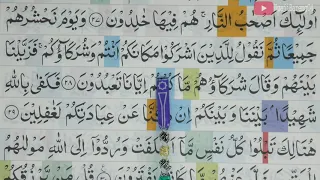 اُولٰٓئِكَ اَصْحٰبُ النَّارِ ۚ هُمْ فِيْهَا خٰلِدُوْنَ ﴿۲۷﴾ وَيَوْمَ نَحْشُرُهُمْ
جَمِيْعًا ثُمَّ نَقُوْلُ لِلَّذِيْنَ اَشْرَكُوْا مَكَانَكُمْ اَنْتُمْ وَشُرَكَآؤُكُمْ ۚ فَزَيَّلْنَا
بَيْنَهُمْ وَقَالَ شُرَكَآؤُهُمْ مَّا كُنْتُمْ اِيَّانَا تَعْبُدُوْنَ ﴿۲۸﴾ فَكَفٰى بِاللّٰهِ
شَهِيْدًاۢ بَيْنَنَا وَبَيْنَكُمْ اِنْ كُنَّا عَنْ عِبَادَتِكُمْ لَغٰفِلِيْنَ ﴿۲۹﴾
هُنَالِكَ تَبْلُوْا كُلُّ نَفْسٍ مَّآ اَسْلَفَتْ وَرُدُّوْٓا اِلَى اللّٰهِ مَوْلٰىهُمُ